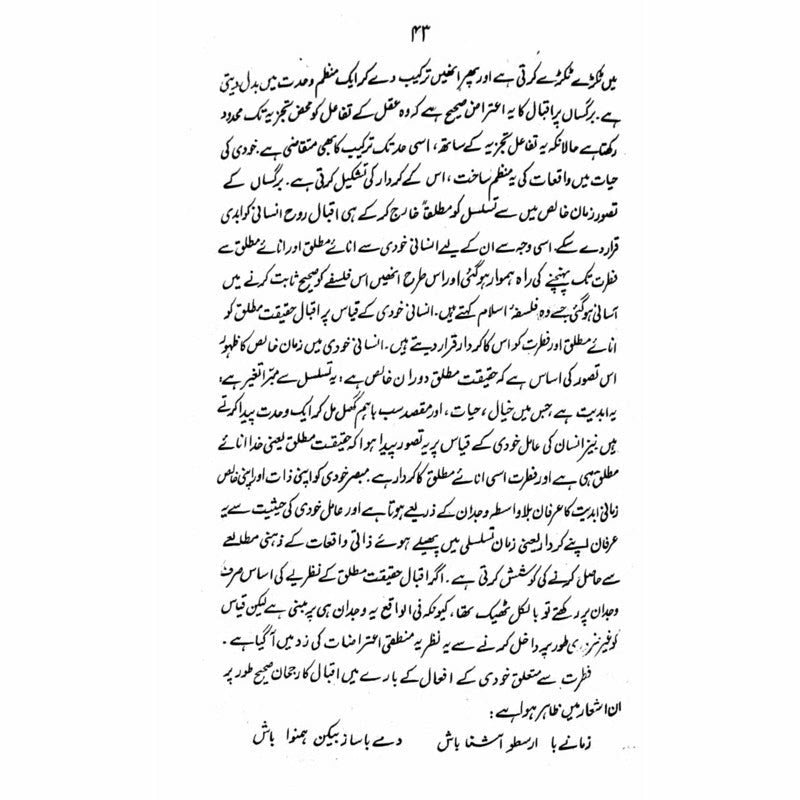 ۴۳
میں ٹکڑے ٹکڑے کرتی ہے اور پھر انھیں ترکیب دے کر ایک منظم وحدت میں بدل دیتی
ہے۔ برگساں پر اقبال کا یہ اعتراض صحیح ہے کہ وہ عقل کے تفاعل کو محض تجزیہ تک محدود
رکھتا ہے حالانکہ یہ تفاعل تجزیہ کے ساتھ، اسی حد تک ترکیب کا بھی متقاضی ہے۔ خودی کی
حیات میں واقعات کی یہ منظم ساخت، اس کے کردار کی تشکیل کرتی ہے۔ برگساں کے
تصور زمان خالص میں سے تسلسل کو مطلقاً خارج کر کے ہی اقبال روح انسانی کو ابدی
قرار دے سکے۔ اسی وجہ سے ان کے لیے انسانی خودی سے انائے مطلق اور انائے مطلق سے
فطرت تک پہنچنے کی راہ ہموار ہو گئی اور اس طرح انھیں اس فلسفے کو صحیح ثابت کرنے میں
آسانی ہو گئی جسے وہ فلسفۂ اسلام کہتے ہیں۔ انسانی خودی کے قیاس پر اقبال حقیقت مطلق کو
انائے مطلق اور فطرت کو اس کا کردار قرار دیتے ہیں۔ انسانی خودی میں زمان خالص کا ظہور
اس تصور کی اساس ہے کہ حقیقت مطلق دوران خالص ہے؛ یہ تسلسل سے مبرا تغیر ہے؛
یہ ابدیت ہے جس میں خیال، حیات، اور مقصد سب باہم گھل مل کر ایک وحدت پیدا کرتے
ہیں نیز انسان کی عامل خودی کے قیاس پر یہ تصور پیدا ہوا کہ حقیقت مطلق یعنی خدا انائے
مطلق ہی ہے اور فطرت اسی انائے مطلق کا کردار ہے۔ مبصر خودی کو اپنی ذات اور اپنی خالص
زمانی ابدیت کا عرفان بلاواسطہ وجدان کے ذریعے ہوتا ہے اور عامل خودی کی حیثیت سے یہ
عرفان اپنے کردار یعنی زمان تسلسلی میں پھیلے ہوئے ذاتی واقعات کے ذہنی مطالعے
سے حاصل کرنے کی کوشش کرتی ہے۔ اگر اقبال حقیقت مطلق کے نظریے کی اساس صرف
وجدان پر رکھتے تو بالکل ٹھیک تھا، کیونکہ فی الواقع یہ وجدان ہی پر مبنی ہے لیکن قیاس
کو غیر ضروری طور پر داخل کرنے سے یہ نظریہ منطقی اعتراضات کی زد میں آ گیا ہے۔
فطرت سے متعلق خودی کے افعال کے بارے میں اقبال کا رجحان صحیح طور پر
ان اشعار میں ظاہر ہوا ہے:
زمانے با ارسطو آشنا باش دمے با ساز بیکن ہمنوا باش